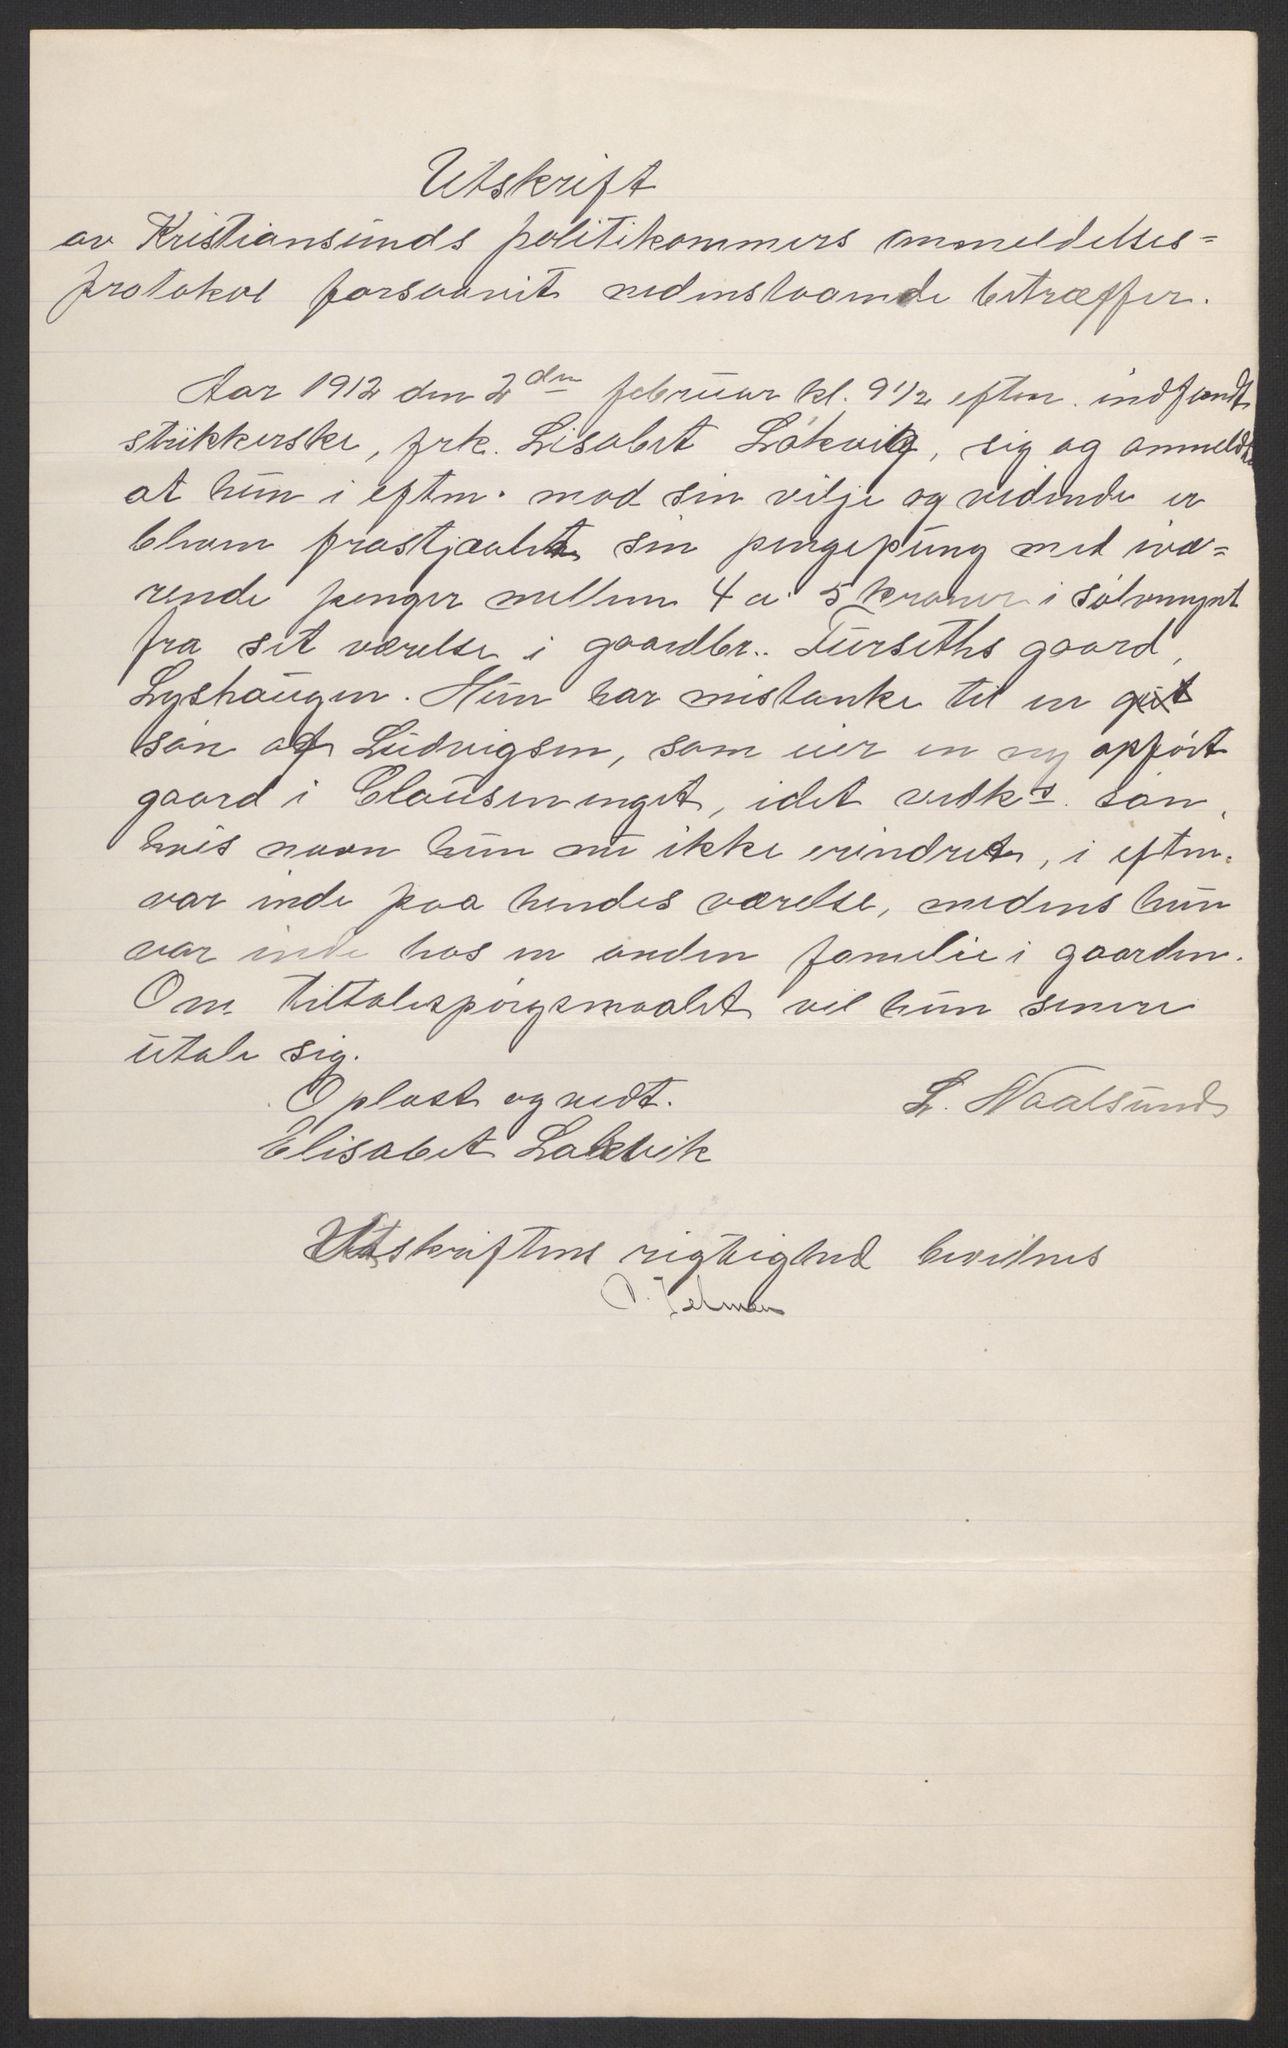 Utskrift
av Kristiansunds politikammers anmeldelses=
protokol forsaavit nedenstaaende betræffer.
Aar 1912 den 2den februar kl. 9 1/2 eftm. indfandt
strikkerske, frk. Lisabet Løkvig, sig og anmeldte
at hun i eftm. mod sin vilje og vidende er
bleven frastjaalet sin pengepung med ivæ=
rende penger mellem 4 a 5 kroner i sølvmynt
fra sit værelse i gaardbr. Furseths gaard,
Lyshaugen. Hun har mistanke til en gut
søn af Ludvigsen, som eier en ny opført
gaard i Clausenenget, idet vedks. søn,
hvis navn hun nu ikke erindret, i eftm.
var inde paa hendes værelse, medens hun
var inde hos en anden familie i gaarden.
Om tiltalespørgsmaalet vil hun senere
utale sig.
Oplæst og vedt.
L. Naalsund
Elisabet Løkvik
Utskriftens rigtighed bevidnes